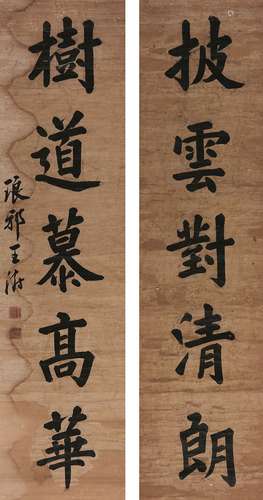 披雲對清朗
樹道慕高華
琅邪王澍